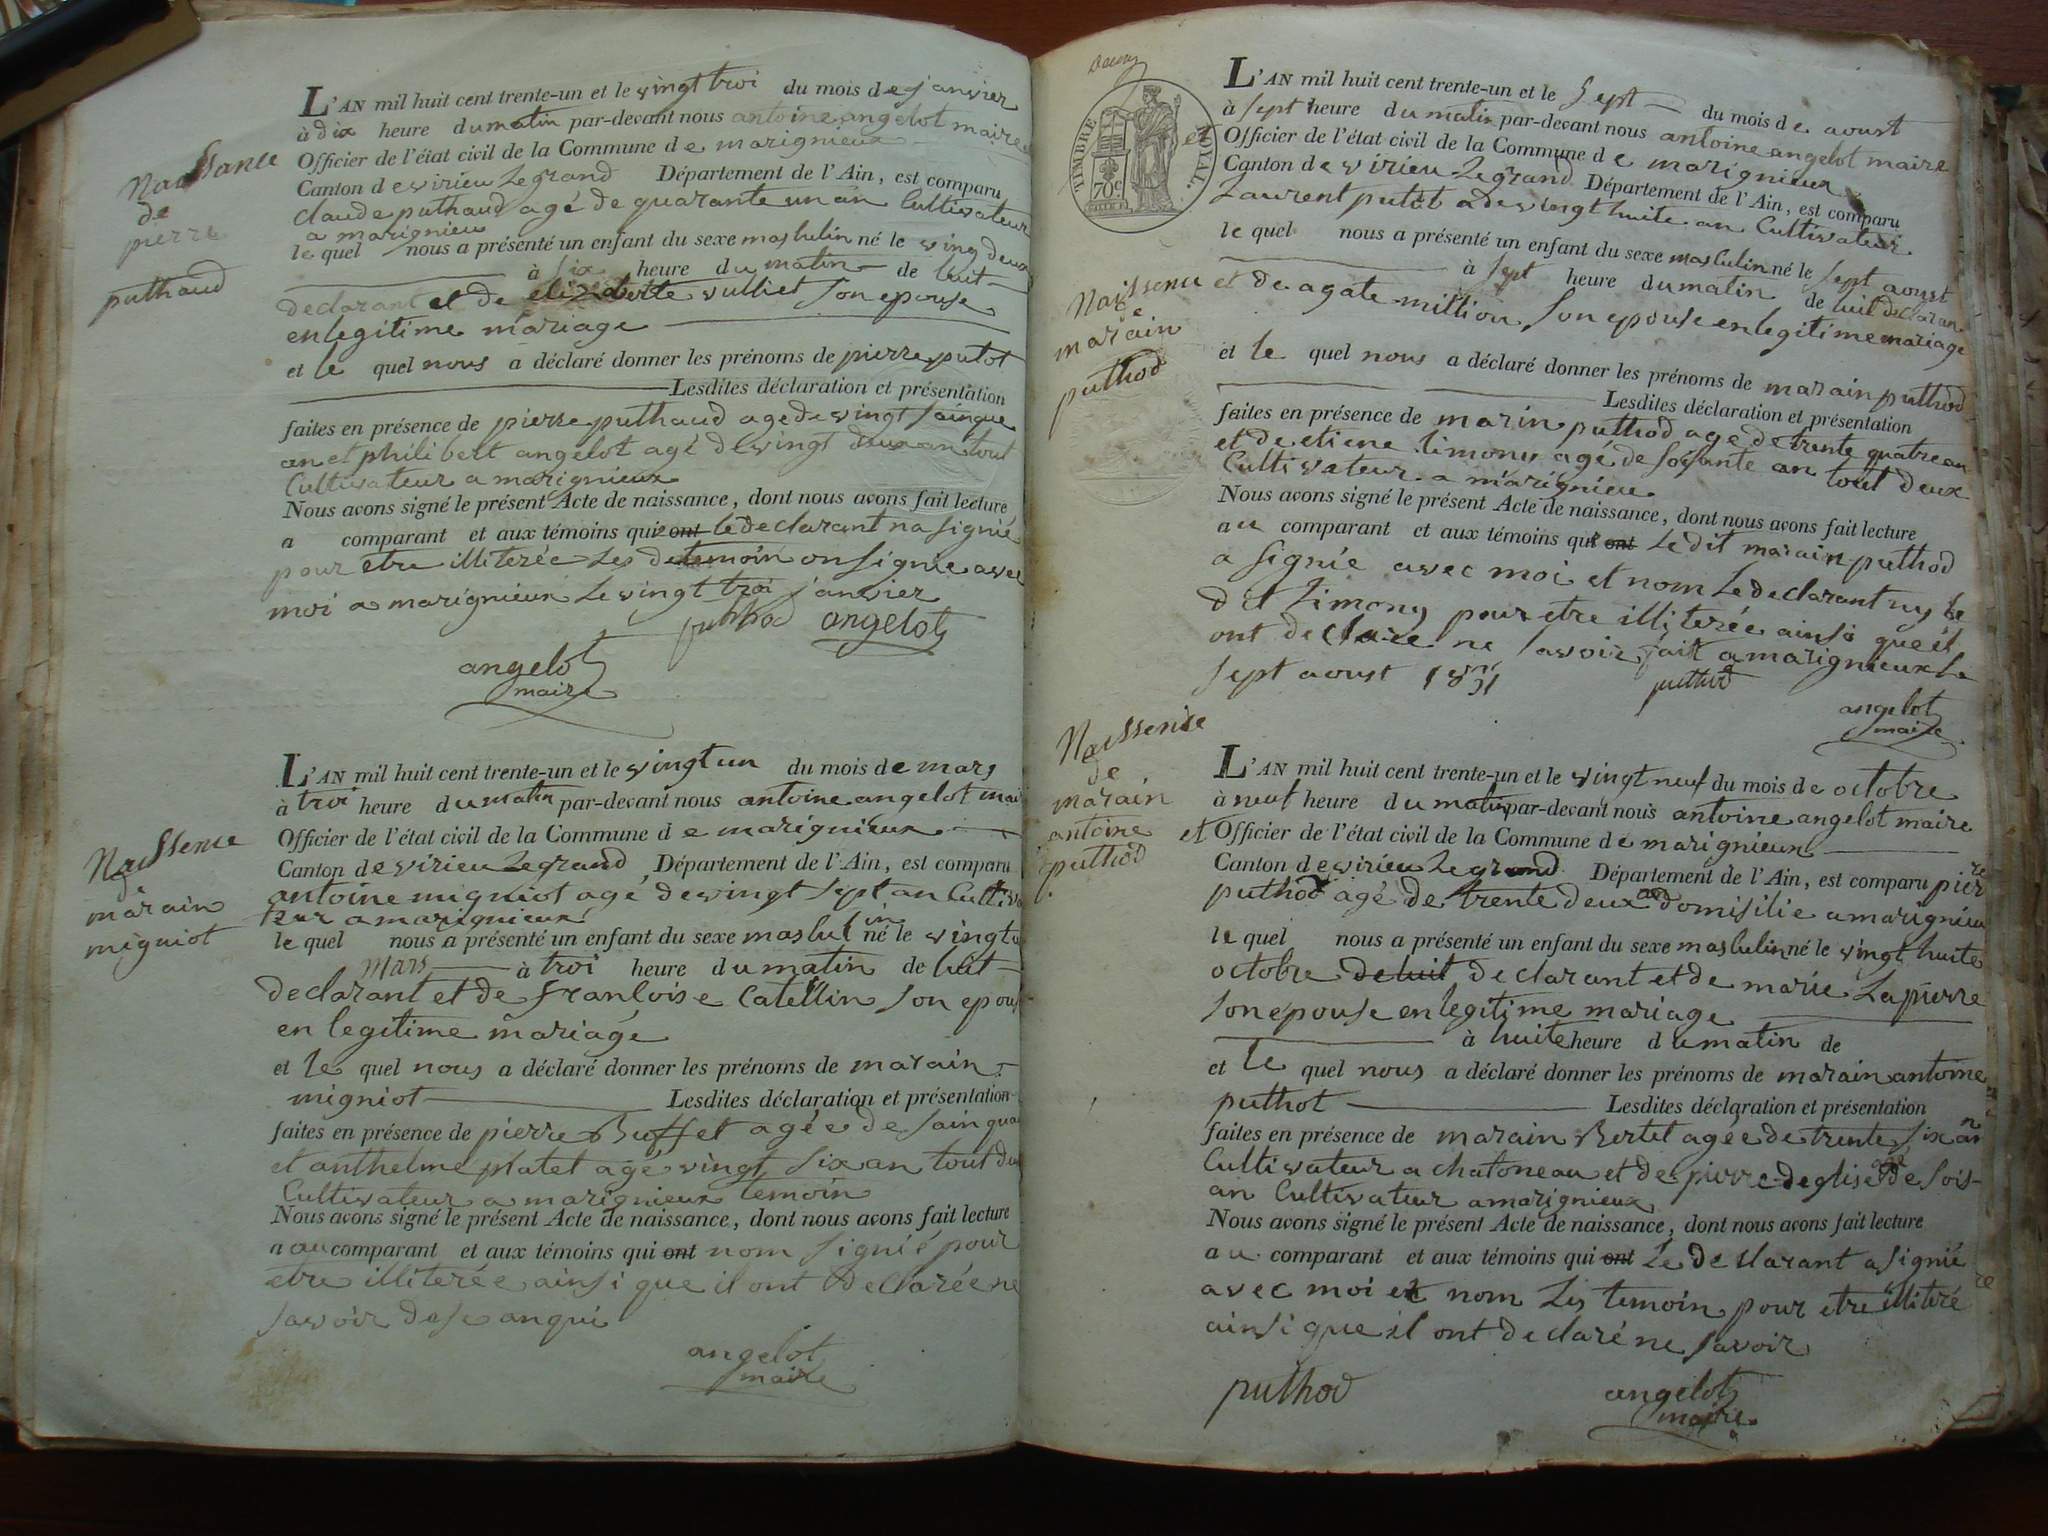 Naissance
de
pierre
puthaud
L'AN mil huit cent trente-un et le vingt troi du mois de janvier
à dix heure du matin par-devant nous antoine angelot maire
Officier de l'état civil de la Commune de marignieux
Canton de virieu Le grand Département de l'Ain, est comparu
claude puthaud agé de quarante un an Cultivateur
a marignieu
le quel nous a présenté un enfant du sexe masculin né le ving deux
à six heure du matin de luit
declarant et de vulliet son epouse
en legitime mariage
et le quel nous a déclaré donner les prénoms de pierre putot
Lesdites déclaration et présentation
faites en présence de pierre puthaud age de vingt sainque
an et philibert angelot agé de vingt deux an tout
Cultivateur a marignieux
Nous avons signé le présent Acte de naissance, dont nous avons fait lecture
a comparant et aux témoins qui ont le declarant na signié
pour etre illiterée Les temoin on signie avec
moi a marignieux Le vingt troi janvier
puthod angelot
angelot
maire
Naissence
de
marain
migniot
L'AN mil huit cent trente-un et le vingt un du mois de mars
à troi heure du matin par-devant nous antoine angelot mai
Officier de l'état civil de la Commune de marignieux
Canton de virieu Le grand Département de l'Ain, est comparu
antoine migniot agé de vingt sept an Cultiva
teur a marignieux
le quel nous a présenté un enfant du sexe masculin né le vingt u
mars à troi heure du matin de luit
declarant et de françoise Catellin son epous
en legitime mariage
et le quel nous a déclaré donner les prénoms de marain
migniot Lesdites déclaration et présentation
faites en présence de pierre Buffet agée de sainqua
et anthelme platet agé vingt six an tout du
Cultivateur a marignieux temoin
Nous avons signé le présent Acte de naissance, dont nous avons fait lecture
a au comparant et aux témoins qui ont nom signié pour
etre illiterée ainsi que il ont declarée ne
savoir de se anqui
angelot
maire
TIMBRE ROYAL.
70c
Naissence
de
marain
puthod
L'AN mil huit cent trente-un et le sept du mois de aoust
à sept heure du matin par-devant nous antoine angelot maire
et Officier de l'état civil de la Commune de marignieux
Canton de virieu Le grand Département de l'Ain, est comparu
Laurent putot a de vingt huite an Cultivateur
le quel nous a présenté un enfant du sexe masculin né le sept aoust
à sept heure du matin de luit declaran
et de agate million son epouse en legitime mariage
et le quel nous a déclaré donner les prénoms de marain puthod
Lesdites déclaration et présentation
faites en présence de marin puthod age de trente quatre an
et de etiene limony agé de soisante an tout deux
Cultivateur a marignieu
Nous avons signé le présent Acte de naissance, dont nous avons fait lecture
au comparant et aux témoins qui ont Le dit marain puthod
a signié avec moi et nom Le declarant ny le
dit Limony pour etre illiterée ainsi que il
ont declaré ne savoir fait a marignieux Le
sept aoust 1831
puthod
angelot
maire
Naissence
de
marain
antoine
puthod
L'AN mil huit cent trente-un et le vingt neuf du mois de octobre
à neuf heure du matin par-devant nous antoine angelot maire
et Officier de l'état civil de la Commune de marignieux
Canton de virieu Le grand Département de l'Ain, est comparu pierre
puthod agé de trente deux an domisilie a marignieu
le quel nous a présenté un enfant du sexe masculin né le vingt huite
octobre de luit declarant et de marie Lapierre
son epouse en legitime mariage
à huite heure du matin de
et le quel nous a déclaré donner les prénoms de marain antoine
puthot Lesdites déclaration et présentation
faites en présence de marain Bertet agée de trente six an
Cultivateur a chatoneau et de pierre deglise agé de sois-
an Cultivateur a marignieux
Nous avons signé le présent Acte de naissance, dont nous avons fait lecture
au comparant et aux témoins qui ont Le declarant a signié
avec moi et nom Les temoin pour etre illiteré
ainsi que il ont declaré ne savoir
puthod angelot
maire